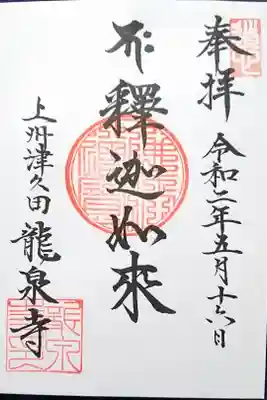 奉拝 令和二年五月十六日
釋迦如來
上州津久田 龍泉寺